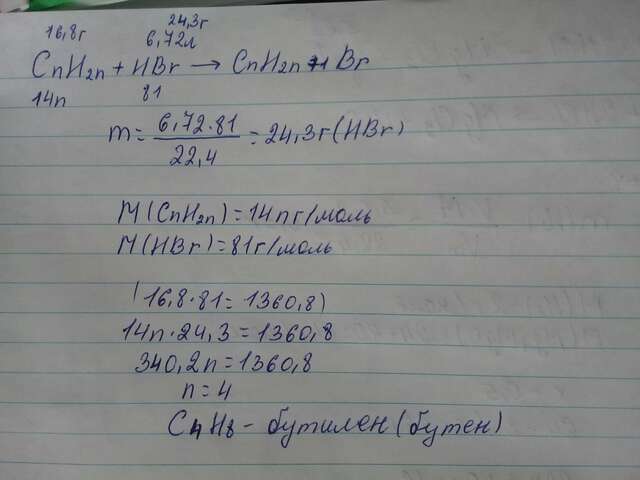 16,8г 24,3г
6,72л
CnH2n + HBr → CnH2n+1Br
14n 81
m = 6,72·81 / 22,4 = 24,3г (HBr)
M(CnH2n) = 14n г/моль
M(HBr) = 81г/моль
(16,8·81 = 1360,8)
14n·24,3 = 1360,8
340,2n = 1360,8
n = 4
C4H8 - бутилен (бутен)